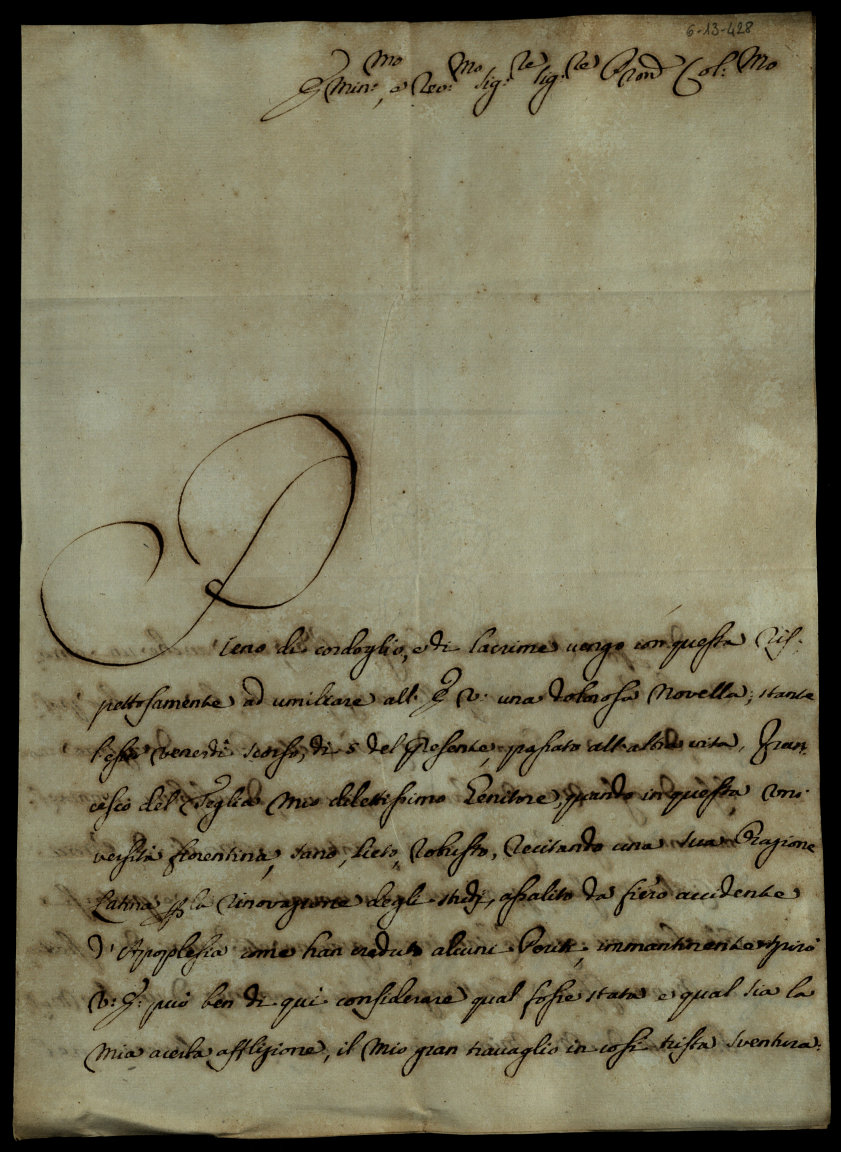 6-13-428
Emin:mo, e Rev:mo Sig:re Sig:re Pron Col:mo
Pieno di cordoglio, e di lacrime vengo con questa Ris-
pettosamente ad umiliare all' E V: una dolorosa Novella; stante
venerdi scorso, di 5 del Presente, passato all'altra vita, Fran-
cesco del Teglia mio dilettissimo Genitore, quando in questa Uni-
versità fiorentina, sano, lieto, Robusto, Recitando una sua Orazione
Latina per la rinovazione degli studj, assalito da fiero accidente
d'Apoplesia come han creduto alcuni Periti, immantinente spirò
V: E: può ben di qui considerare qual fosse stata e qual sia la
mia acerba afflizione, il mio gran travaglio in così trista sventura: